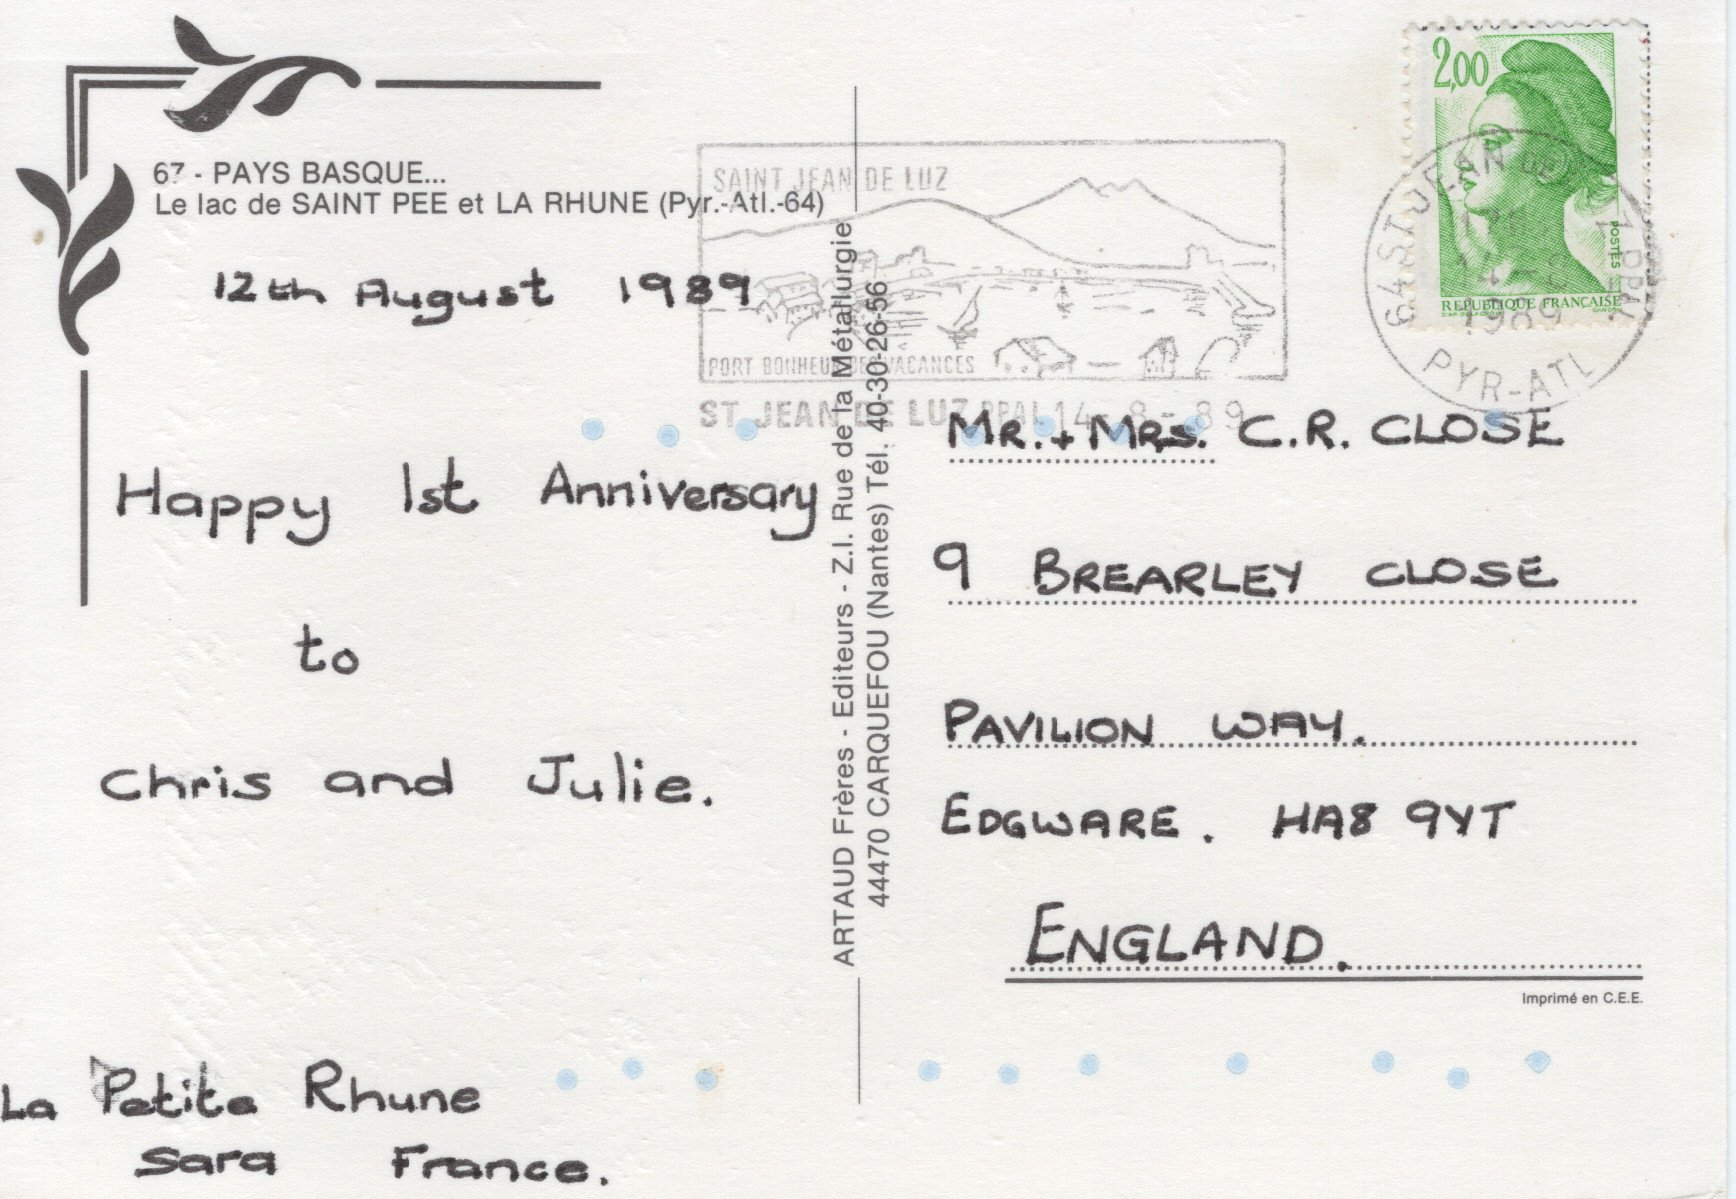 67 - PAYS BASQUE...
Le lac de SAINT PEE et LA RHUNE (Pyr.-Atl.-64)
12th August 1989
Happy 1st Anniversary
to
Chris and Julie.
La Petite Rhune
Sara France.
ARTAUD Frères - Editeurs - Z.I. Rue de la Métallurgie
44470 CARQUEFOU (Nantes) Tél. 40-30-26-56
SAINT JEAN DE LUZ
PORT BONHEUR DES VACANCES
ST JEAN DE LUZ PPAL 14-8-89
2,00
POSTES
REPUBLIQUE FRANÇAISE
D'AP. DELACROIX GANDON
64 ST JEAN DE LUZ PPAL
14-8
1989
PYR-ATL
MR. + MRS. C.R. CLOSE
9 BREARLEY CLOSE
PAVILION WAY.
EDGWARE. HA8 9YT
ENGLAND.
Imprimé en C.E.E.